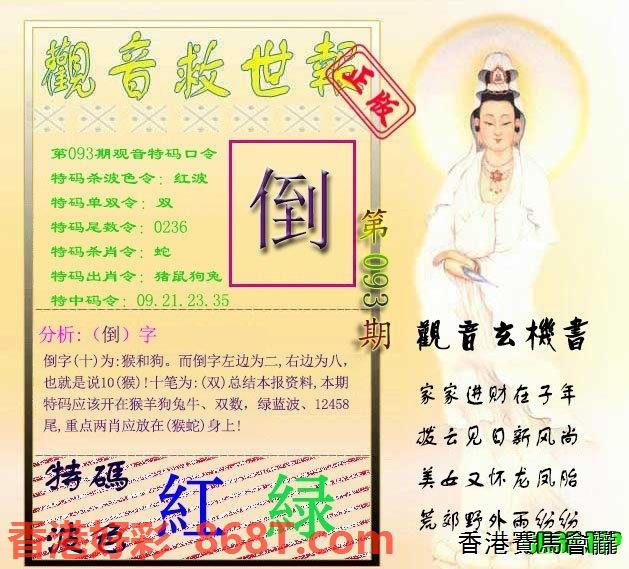 觀音救世報
正版
第093期观音特码口令
特码杀波色令：红波
特码单双令：双
特码尾数令：0236
特码杀肖令：蛇
特码出肖令：猪鼠狗兔
特中码令：09.21.23.35
倒
第093期
分析:（倒）字
倒字(十)为:猴和狗。而倒字左边为二,右边为八,
也就是说10(猴)!十笔为:(双)总结本报资料,本期
特码应该开在猴羊狗兔牛、双数，绿蓝波、12458
尾,重点两肖应放在(猴蛇)身上!
特碼
波色
紅 绿
觀音玄機書
家家进财在子年
拨云见日新风尚
美女又怀龙凤胎
荒郊野外雨纷纷
香港好彩 868T.com
香港賽馬會